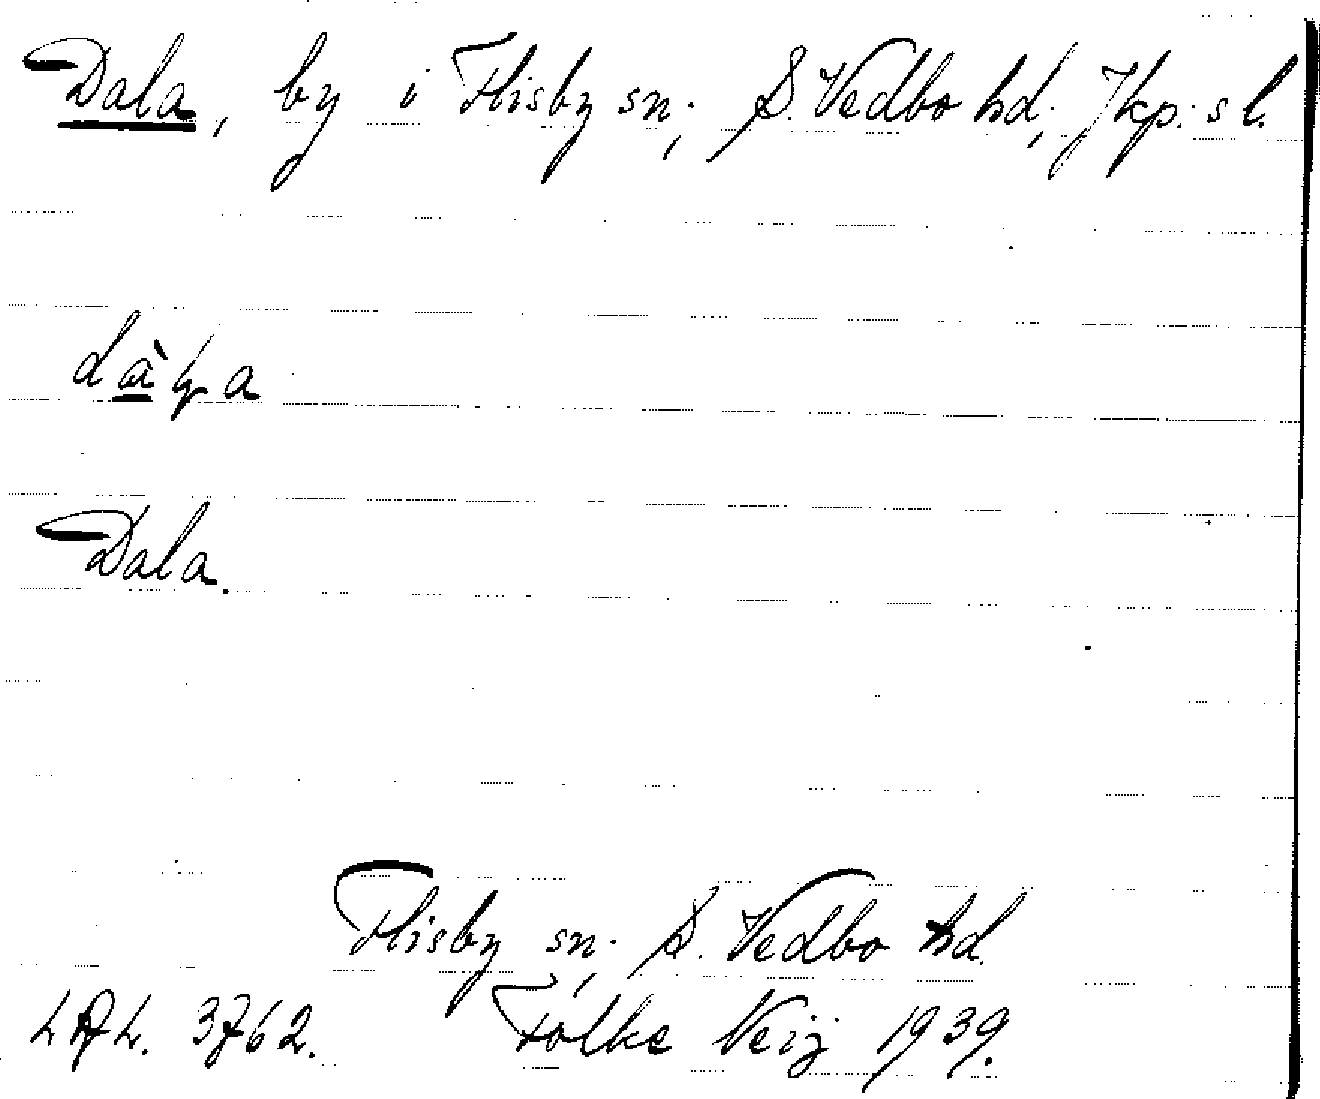 Dala, by i Flisby sn., S. Vedbo hd, Jkp:s l.
dàɽa
Dala.
Flisby sn., S. Vedbo hd.
3762. Folke Neij 1939.